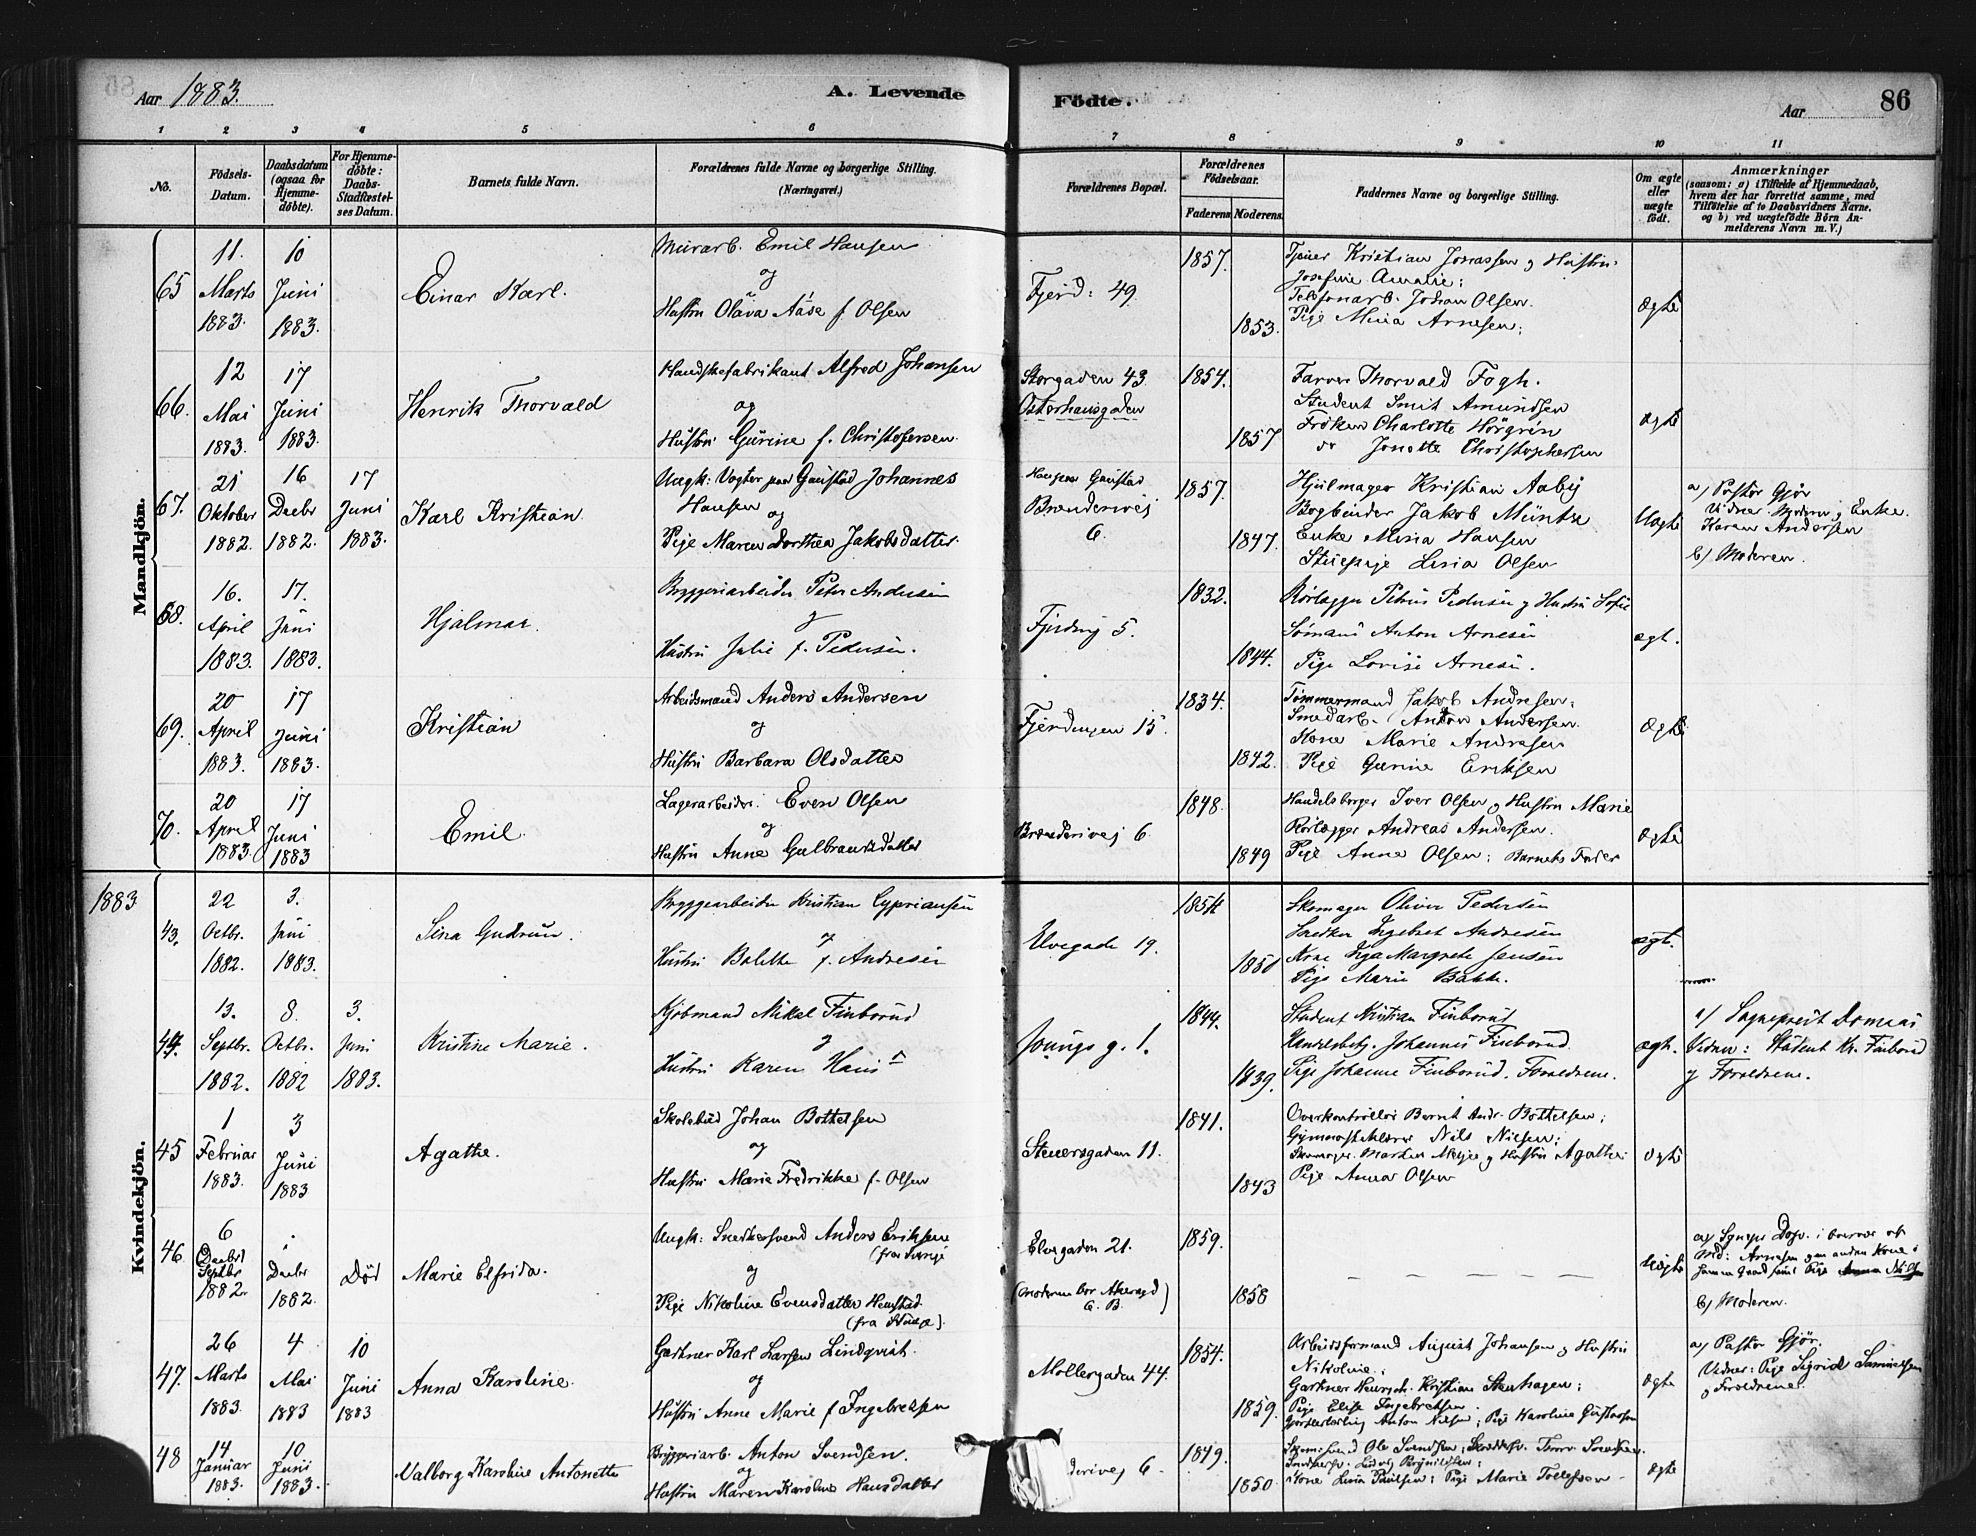 Aar 1883.
A. Levende Födte.
Aar 86
1 2 3 4 5 6 7 8 9 10 11
No.
Födsels-Datum.
Daabsdatum (ogsaa for Hjemme-döbte).
For Hjemme-döbte: Daabs-Stadfæstel-ses Datum.
Barnets fulde Navn.
Forældrenes fulde Navne og borgerlige Stilling. (Næringsvei.)
Forældrenes Bopæl.
Forældrenes Födselsaar.
Faderens Moderens
Faddernes Navne og borgerlige Stilling.
Om ægte eller uægte födt.
Anmærkninger
(saasom: a) i Tilfælde af Hjemmedaab,
hvem der har forrettet samme, med
Tilföielse af to Daabsvidners Navne.
og b) ved uægtefödte Börn An-
melderens Navn m. V.)
Mandkjön.
65 11. Marts 1883. 10 Juni 1883. Einar Karl.
Murarb. Emil Hansen
og
Hustru Olava Aase f. Olsen
Fjerd: 49. 1857. 1853.
Tjener Kristian Jonassen og Hustru
Josefine Amalie;
Telefonarb. Johan Olsen.
Pige Mina Arnesen;
Ægte
66. 12 Mai 1883. 17 Juni 1883. Henrik Thorvald
Handskefabrikant Alfred Johansen
og
Hustru Gurine f. Christofersen
Storgaden 43
Osterhausgaden
1854. 1857
Farver Thorvald Fogh.
Student Smit Amundsen
Frøken Charlotte Hörgrén
do Jonette Christophersen
Ægte
67. 21 Oktober 1882. 16 Decbr 1882. 17 Juni 1883. Karl Kristian
Ungk: Vogter paa Gaustad Johannes
Hansen
og
Pige Maren Dorthea Jakobsdatter
Gaustad
Brænderivej
6.
1857. 1847.
Hjulmager Kristian Aaby
Bogbinder Jakob Müntz
Enke Mina Hansen
Stuepige Lina Olsen
Uægte
a) Pastor Gjør
Vidner: Moderen og Enke
Karen Andersen
b) Moderen.
68. 16. April 1883. 17. Juni 1883. Hjalmar.
Bryggeriarbeider Peter Andersen
og
Hustru Julie f. Pedersen.
Fjerding 5. 1832. 1844.
Rørlægger Petrus Pedersen og Hustru Sofie
Sømand Anton Arnesen
Pige Lovise Arnesen.
ægt.
69. 20 April 1883. 17 Juni 1883. Kristian
Arbeidsmand Anders Andersen
og
Hustru Barbara Olsdatter
Fjerdingen 15. 1834. 1842.
Tømmermand Jakob Andresen;
Smedarb. Anton Andersen
Kone Marie Andresen
Pige Gurine Eriksen
Ægte
70. 20 April 1883. 17 Juni 1883 Emil
Lagerarbeider. Even Olsen
og
Hustru Anne Gulbrandsdatter
Brænderivej 6. 1848. 1849
Handelsborger Iver Olsen og Hustru Marie
Rørlægger Andreas Andersen.
Pige Anne Olsen; Barnets Fader
Ægte
1883
Kvindekjön.
43. 22 Octbr. 1882. 3. Juni 1883. Sina Gudrun.
Bryggearbeider Kristian Cyprianssen
og
Hustru Bolette f. Andresen
Elvegade 19. 1854 1850
Skomager Oliver Pedersen
Snedker Ingebret Andresen
Kone Inga Margrete Jensen
Pige Marie Bakke.
ægt.
44. 13. Septbr. 1882. 8. Octbr. 1882 3. Juni 1883. Kristine Marie.
Kjøbmand Mikal Finborud
og
Hustru Karen Hans
Youngs g. 1. 1844. 1839.
Student Kristian Finborud
Handelsbetj. Johannes Finborud
Pige Johanne Finborud. Forældrene.
ægt.
a) Sogneprest Domaas
Vidner: Student Kr. Finborud
og Forældrene.
45 1 Februar 1883. 3 Juni 1883 Agathe.
Skolebud Johan Bottelsen
og
Hustru Marie Fredrikke f. Olsen
Stenersgaden 11. 1841. 1843
Overkontrollør Bernt Andr. Bottelsen;
Gymnastiklærer Nils Nielsen;
Skomager Morten Meyer og Hustru Agathe
Pige Anna Olsen
Ægte
46 6 Decbr Septbr 1882. Decbr 1882. Død Marie Elfrida.
Ungk: Snedkersvend Anders Eriksen
(fra Sverige
og
Pige Nikoline Evensdatter Hemstad
(fra Stange).
Elvegaden 21.
(Moderen bor Akersgd
6. B.)
1859. 1858
Uægte
b) Moderen.
47. 26 Marts 1883. 4 Mai 1883 10 Juni 1883 Anna Karoline.
Gartner Karl Larsen Lindqvist.
og
Hustru Anne Marie f. Ingebretsen
Møllergaden 44. 1854. 1859.
Arbeidsformand August Johansen og Hustru
Nikoline;
Gartner Heinrich Kristian Stenhagen;
Pige Elise Ingebretsen
Anton Nilsen; Pige Karoline Gustavsen
Ægte
a) Pastor Gjør.
Vidner: Pige Sigrid Samuelsen
og Forældrene.
48 14 Januar 1883. 10 Juni 1883. Valborg Karoline Antonette
Bryggeriarb. Anton Svendsen.
og
Hustru Maren Karoline Hansdatter
derivej 6. 1849. 1850.
Ole Svendsen;
Kone Lina Paulsen; Pige Marie Tollefsen
Ægte